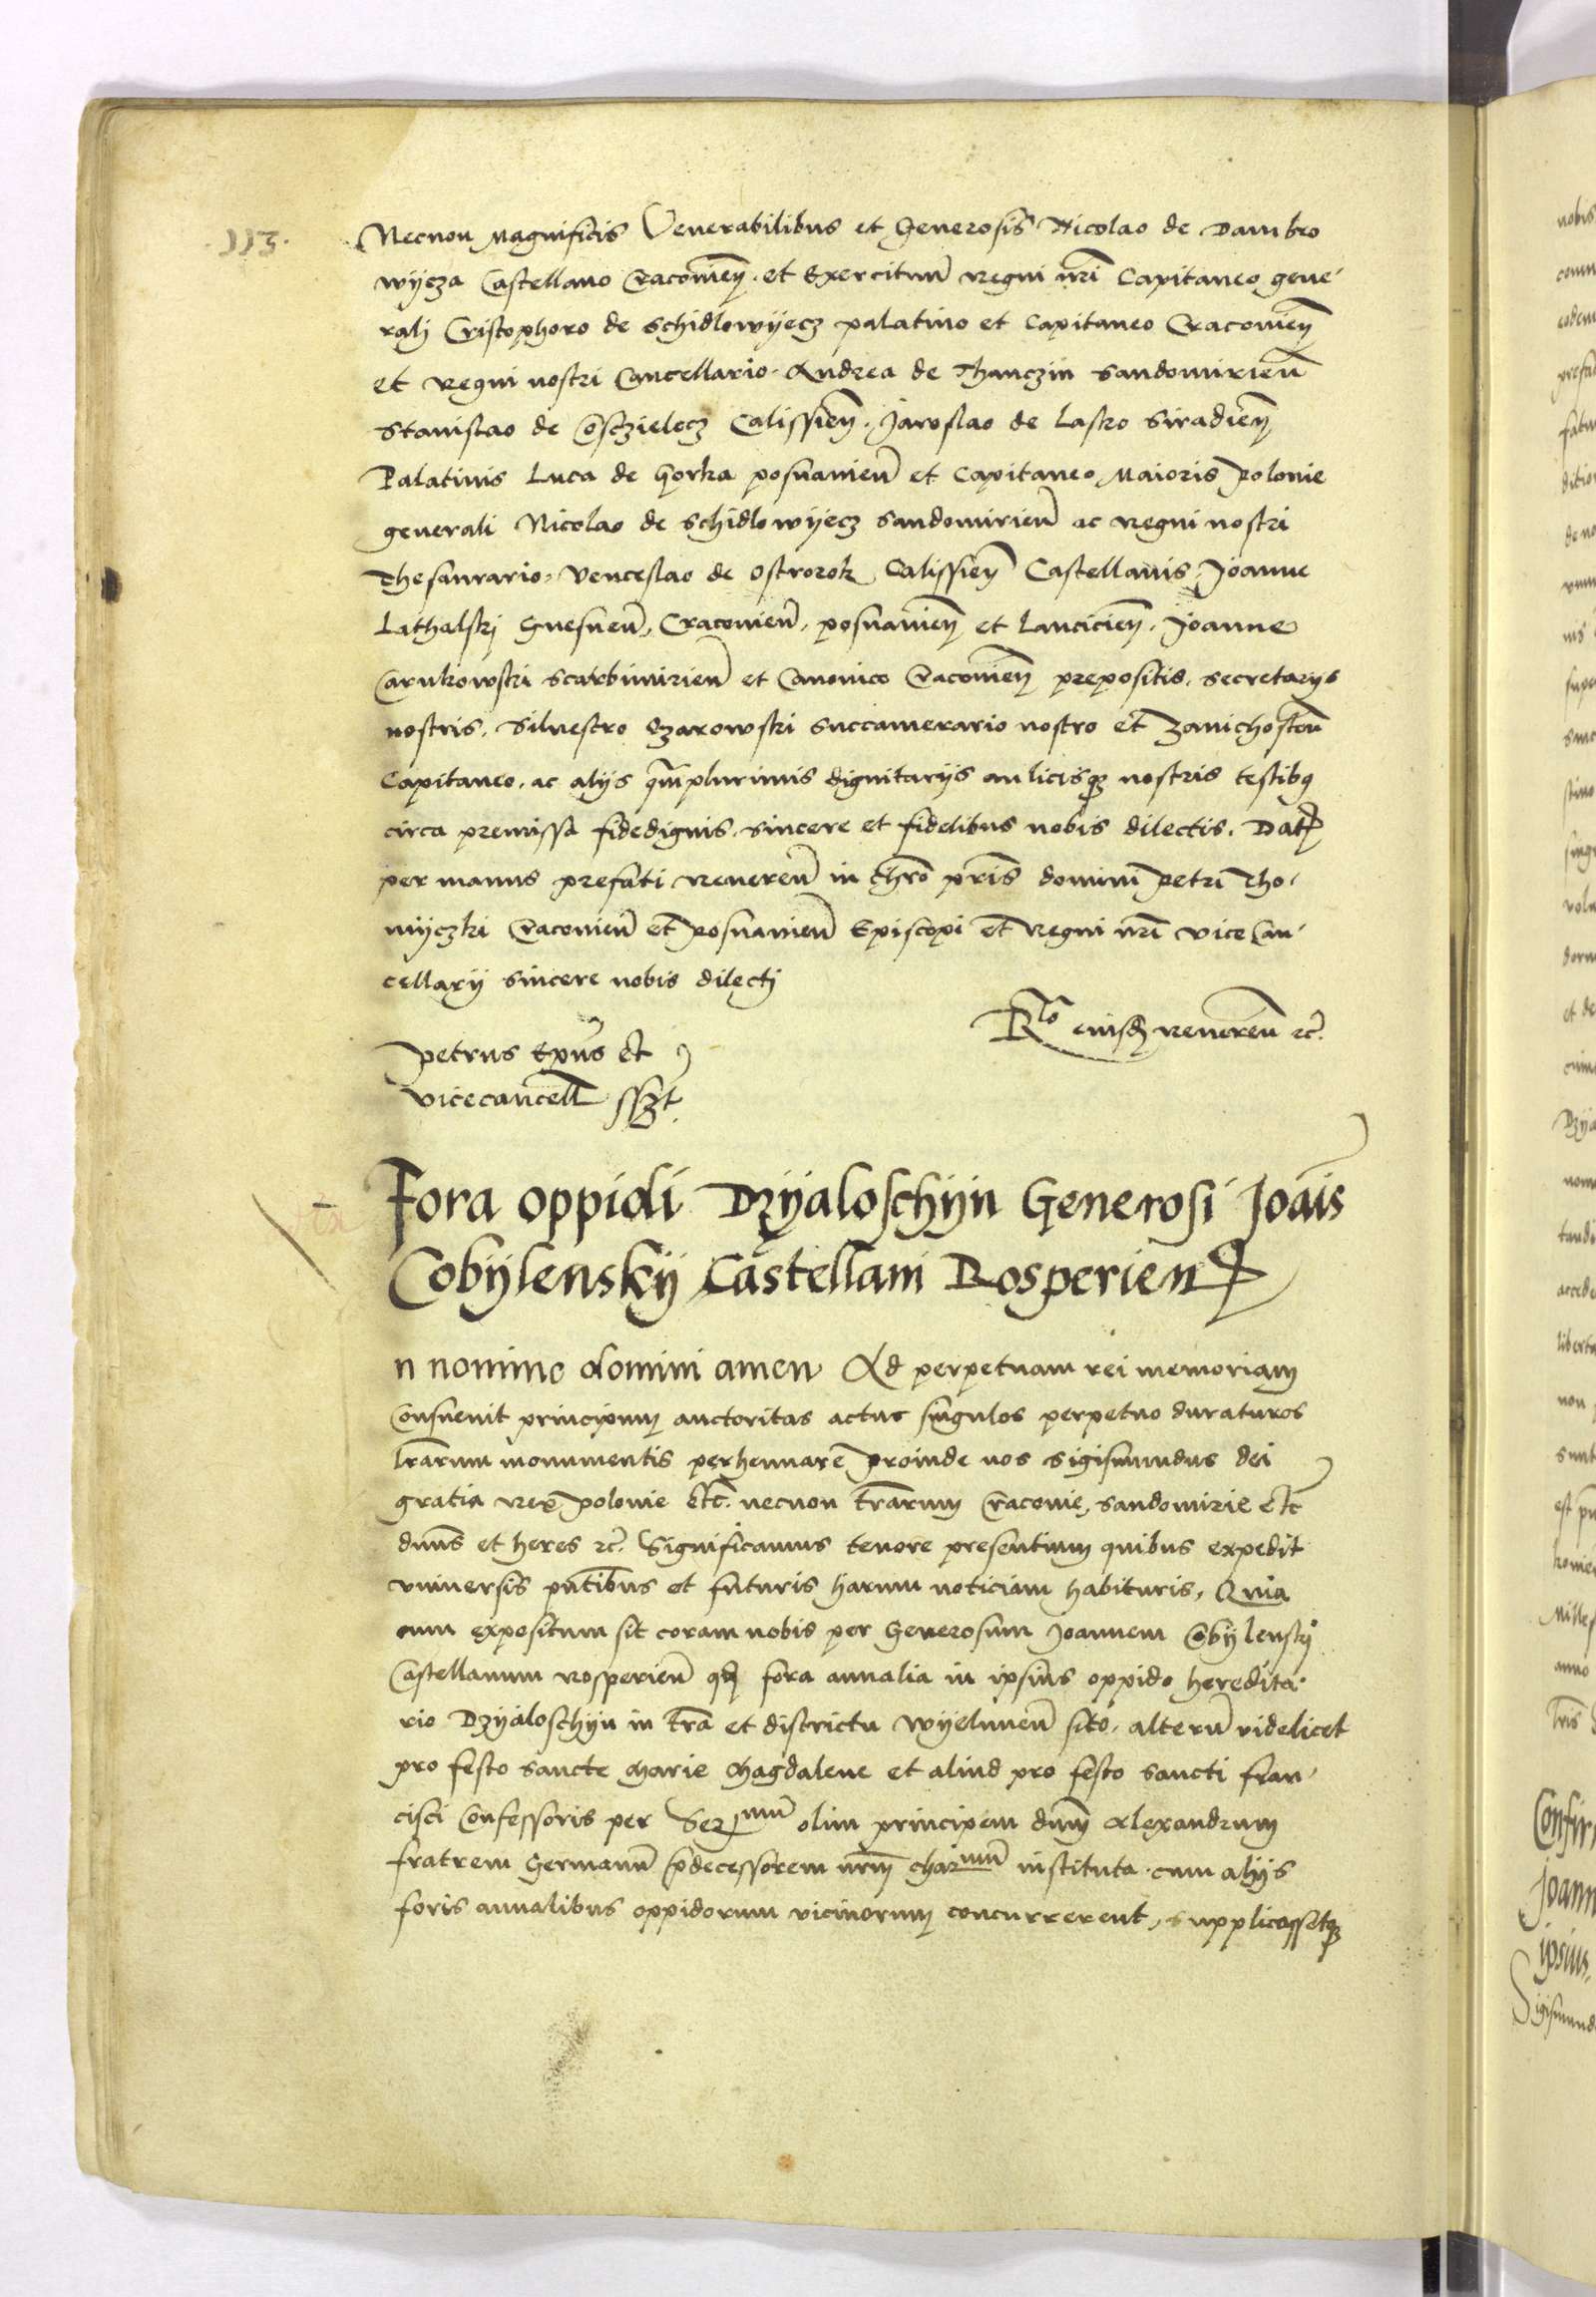 .113.
Necnon Magnificis Venerabilibus et Generosis Nicolao de Dambro
wijcza Castellano Cracovien̄. et Exercituū Regni nr̄i Capitaneo gene-
ralj Cristophoro de Schidlowijecz palatino et Capitaneo Cracovien̄
et Regni nostri Cancellario. Andrea de Thanczin Sandomirien̄
Stanislao de Cosczielecz Calissien̄. Jaroslao de Lasko Siradien̄
Palatinis Luca de Gorka posnanien̄ et Capitaneo Maioris Polonie
generali Nicolao de Schidlowijecz Sandomirien̄ ac Regni nostri
Thesaurario. Venceslao de Ostrorok Calissien̄ Castellanis, Joanne
Lathalskj Gnesnen̄, Cracovien̄, posnanien̄ et Lancicien̄. Joanne
Carnkowski Scarbimirien̄ et Canonico Cracovien̄ prepositis. Secretarijs
nostris. Silvestro Ozarowski Succamerario nostro et Zavichosten̄
Capitaneo. ac alijs qm̄plurimis dignitarijs aulicisq; nostris testibꝯ
circa premissa fidedignis. sincere et fidelibus nobis dilectis. Dat̄
per manus prefati Reveren̄ in chrō pr̄is domini Petri Tho-
mijczki Cracovien̄ et Posnanien̄ Episcopi et Regni nr̄i vice Can-
cellarij sincere nobis dilectj
Rlo eiusd̄ Reveren̄ ꝛc̄.
Petrus Ep̄us et
vicecancell̄ sszt.
Fora oppidi Dzyaloschijn Generosi Joāis
Cobijlenskij Castellani Rosperien̄
n nomine domini amen Ad perpetuam rei memoriam
Consuevit principum auctoritas actus singulos perpetuo duraturos
lr̄arum monumentis perhennare Proinde nos Sigismundus dei
gratia Rex polonie etc̄. necnon tr̄arum Cracovie, Sandomirie etc̄
dn̄us et heres ꝛc̄. Significamus tenore presentium quibus expedit
universis pn̄tibus et futuris harum noticiam habituris, Quia
cum expositum sit coram nobis per Generosum Joannem Cobijlenskj
Castellanum Rosperien̄ qd̄ fora annalia in ipsius oppido heredita-
rio Dzyaloschijn in tr̄a et districtu Wijelunen̄ sito. alterū videlicet
pro festo Sancte Marie Magdalene et aliud pro festo Sancti Fran-
cisci Confessoris per Ser mū olim principem dn̄m Alexandrum
fratrem Germanū p̄decessorem nr̄m charmū instituta. cum alijs
foris annalibus oppidorum vicinorum concurrerent, supplicassetq;